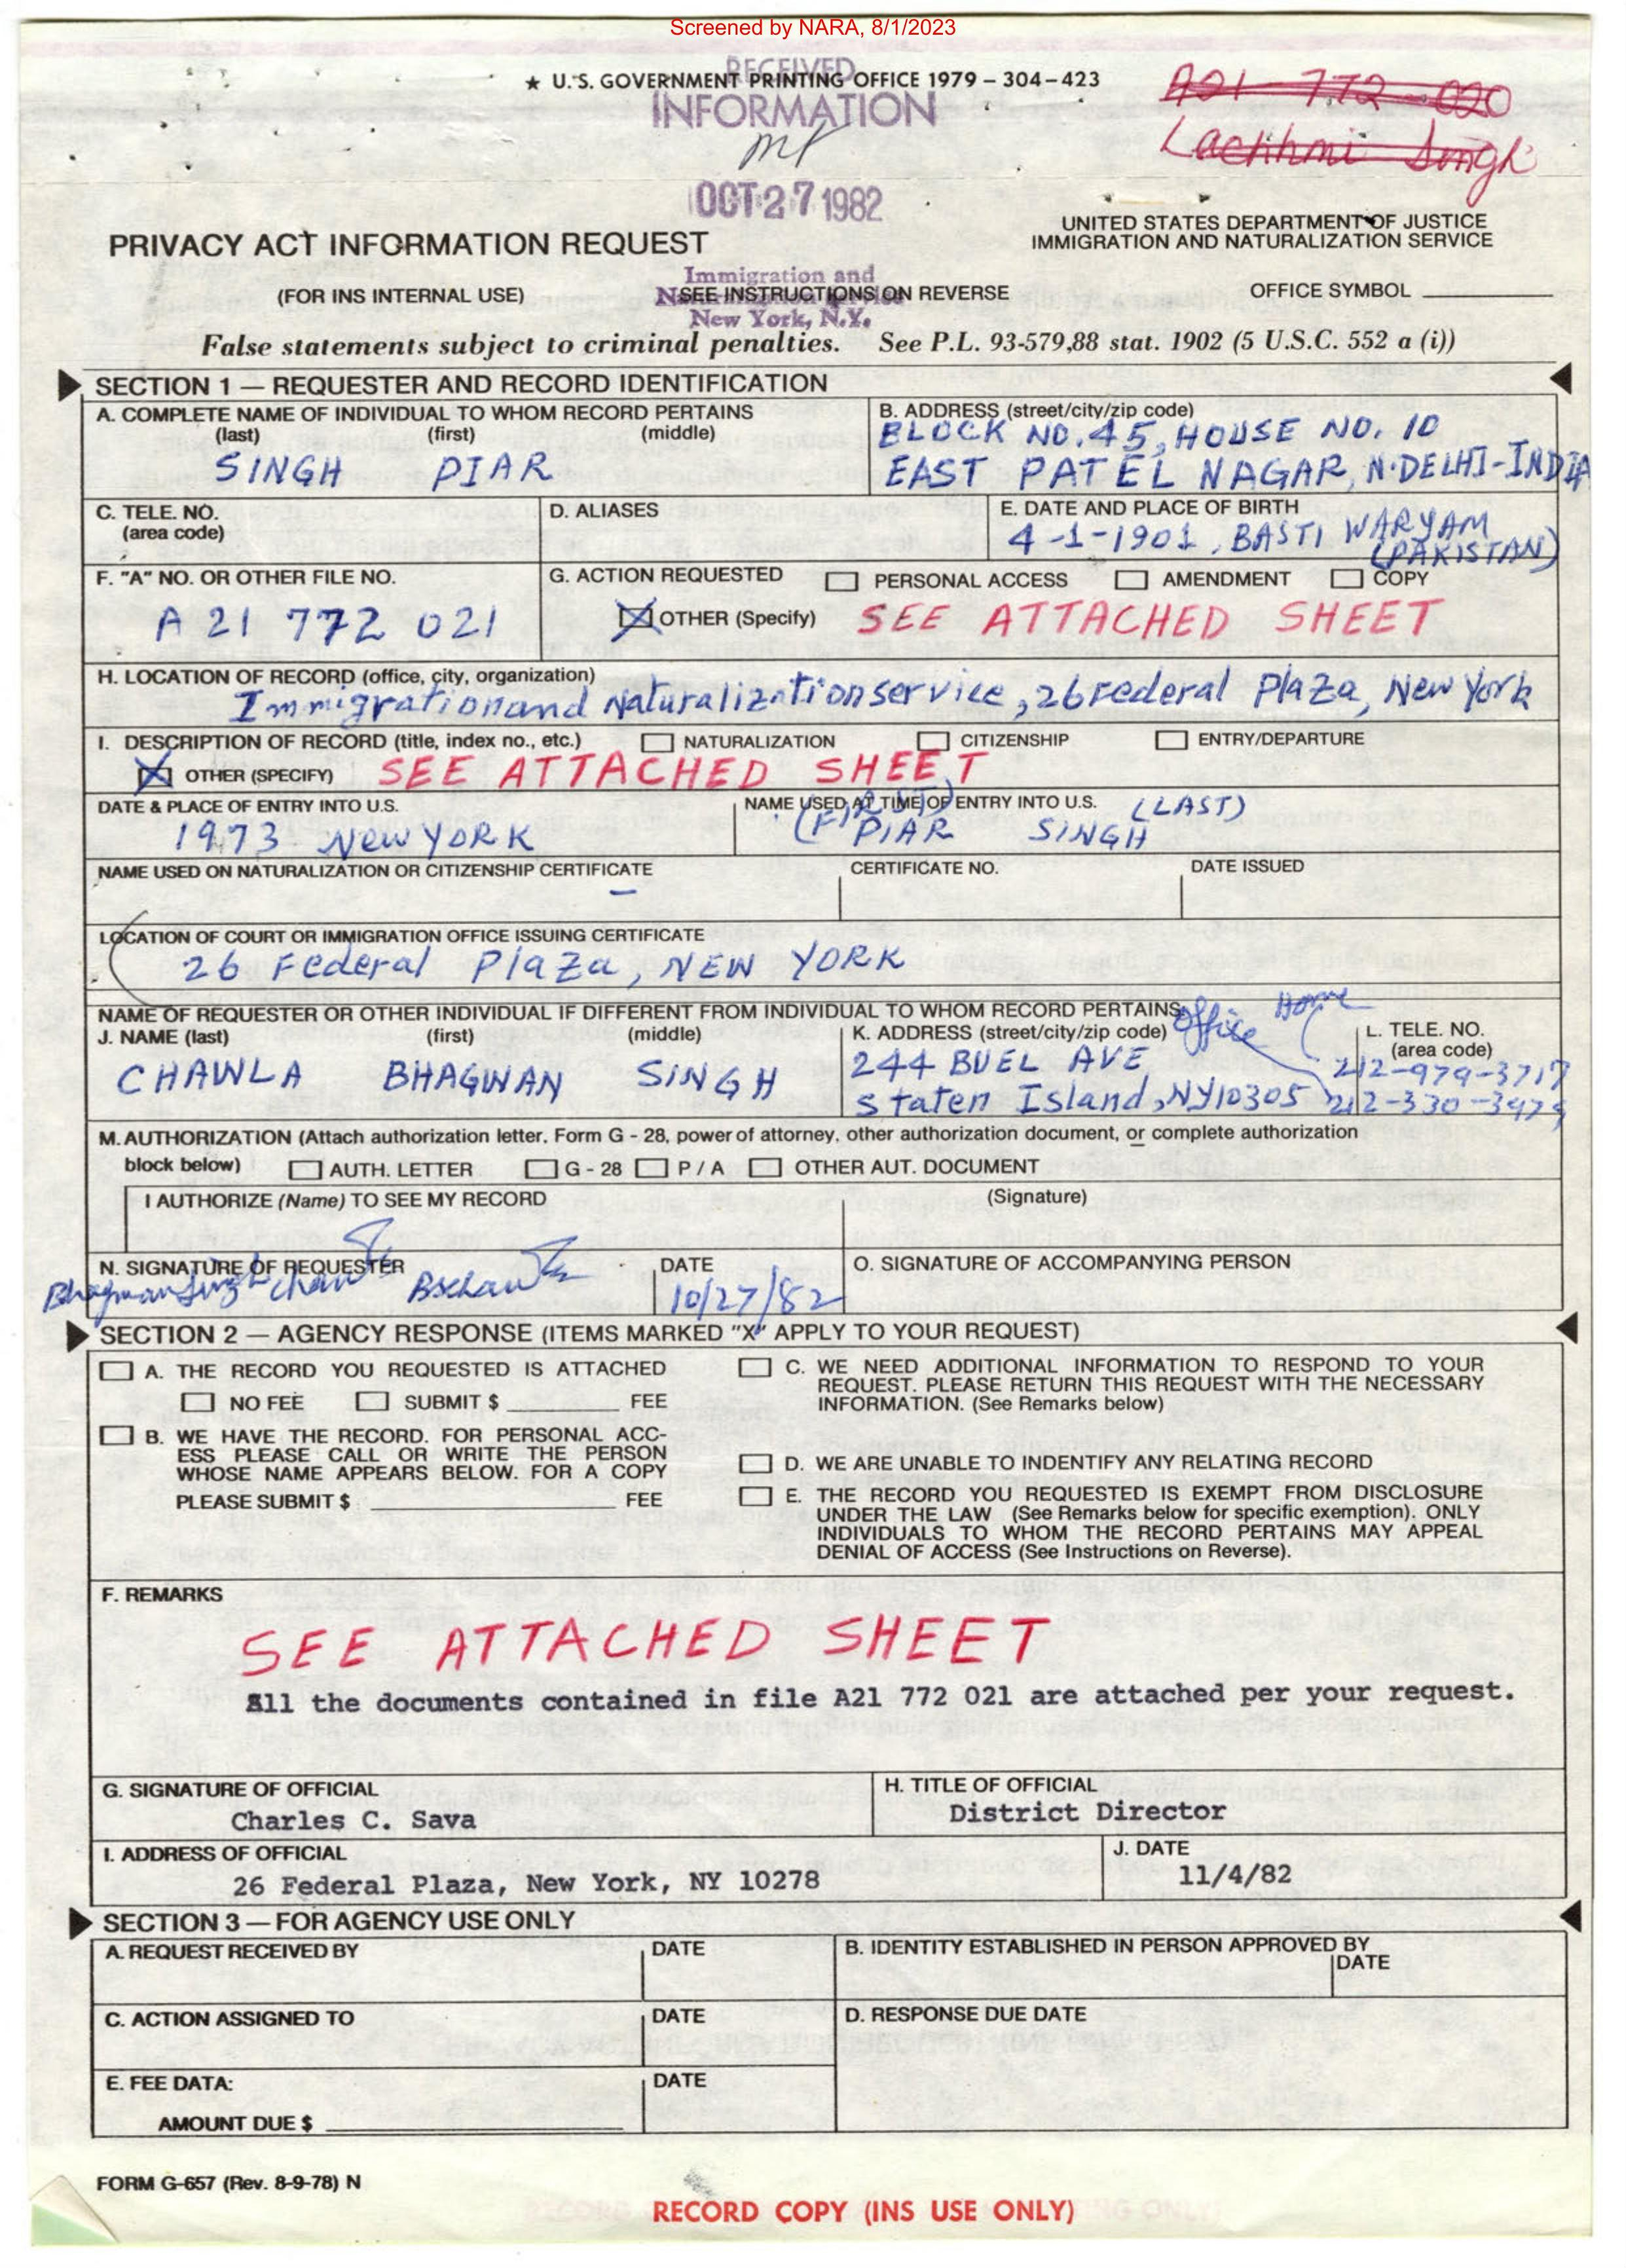 Screened by NARA, 8/1/2023
RECEIVED
★ U.S. GOVERNMENT PRINTING OFFICE 1979 – 304–423
INFORMATION
A21-772-020
Lachhmi Singh
OCT 27 1982
UNITED STATES DEPARTMENT OF JUSTICE
IMMIGRATION AND NATURALIZATION SERVICE
PRIVACY ACT INFORMATION REQUEST
Immigration and
Naturalization Service
New York, N.Y.
(FOR INS INTERNAL USE) SEE INSTRUCTIONS ON REVERSE OFFICE SYMBOL
False statements subject to criminal penalties. See P.L. 93-579,88 stat. 1902 (5 U.S.C. 552 a (i))
SECTION 1 — REQUESTER AND RECORD IDENTIFICATION
A. COMPLETE NAME OF INDIVIDUAL TO WHOM RECORD PERTAINS
(last) (first) (middle)
SINGH PIAR
B. ADDRESS (street/city/zip code)
BLOCK NO. 45, HOUSE NO. 10
EAST PATEL NAGAR, N·DELHI-INDIA
C. TELE. NO.
(area code)
D. ALIASES
E. DATE AND PLACE OF BIRTH
4-1-1901, BASTI WARYAM
(PAKISTAN)
F. "A" NO. OR OTHER FILE NO.
A 21 772 021
G. ACTION REQUESTED PERSONAL ACCESS AMENDMENT COPY
OTHER (Specify) SEE ATTACHED SHEET
H. LOCATION OF RECORD (office, city, organization)
Immigration and Naturalization service, 26 Federal Plaza, New York
I. DESCRIPTION OF RECORD (title, index no., etc.) NATURALIZATION CITIZENSHIP ENTRY/DEPARTURE
OTHER (SPECIFY) SEE ATTACHED SHEET
DATE & PLACE OF ENTRY INTO U.S.
1973 NEW YORK
NAME USED AT TIME OF ENTRY INTO U.S.
(FIRST) (LAST)
PIAR SINGH
NAME USED ON NATURALIZATION OR CITIZENSHIP CERTIFICATE CERTIFICATE NO. DATE ISSUED
–
LOCATION OF COURT OR IMMIGRATION OFFICE ISSUING CERTIFICATE
26 Federal Plaza, NEW YORK
NAME OF REQUESTER OR OTHER INDIVIDUAL IF DIFFERENT FROM INDIVIDUAL TO WHOM RECORD PERTAINS
J. NAME (last) (first) (middle)
CHAWLA BHAGWAN SINGH
K. ADDRESS (street/city/zip code)
244 BUEL AVE
Staten Island, NY10305
Office Home
L. TELE. NO.
(area code)
212-979-3717
212-330-3479
M. AUTHORIZATION (Attach authorization letter, Form G - 28, power of attorney, other authorization document, or complete authorization
block below) AUTH. LETTER G - 28 P / A OTHER AUT. DOCUMENT
I AUTHORIZE (Name) TO SEE MY RECORD (Signature)
N. SIGNATURE OF REQUESTER
Bhagwan Singh Chawla
DATE
10/27/82
O. SIGNATURE OF ACCOMPANYING PERSON
SECTION 2 — AGENCY RESPONSE (ITEMS MARKED "X" APPLY TO YOUR REQUEST)
A. THE RECORD YOU REQUESTED IS ATTACHED
NO FEE SUBMIT $ FEE
B. WE HAVE THE RECORD. FOR PERSONAL ACC-
ESS PLEASE CALL OR WRITE THE PERSON
WHOSE NAME APPEARS BELOW. FOR A COPY
PLEASE SUBMIT $ FEE
C. WE NEED ADDITIONAL INFORMATION TO RESPOND TO YOUR
REQUEST. PLEASE RETURN THIS REQUEST WITH THE NECESSARY
INFORMATION. (See Remarks below)
D. WE ARE UNABLE TO INDENTIFY ANY RELATING RECORD
E. THE RECORD YOU REQUESTED IS EXEMPT FROM DISCLOSURE
UNDER THE LAW (See Remarks below for specific exemption). ONLY
INDIVIDUALS TO WHOM THE RECORD PERTAINS MAY APPEAL
DENIAL OF ACCESS (See Instructions on Reverse).
F. REMARKS
SEE ATTACHED SHEET
All the documents contained in file A21 772 021 are attached per your request.
G. SIGNATURE OF OFFICIAL
Charles C. Sava
H. TITLE OF OFFICIAL
District Director
I. ADDRESS OF OFFICIAL
26 Federal Plaza, New York, NY 10278
J. DATE
11/4/82
SECTION 3 — FOR AGENCY USE ONLY
A. REQUEST RECEIVED BY DATE
B. IDENTITY ESTABLISHED IN PERSON APPROVED BY
DATE
C. ACTION ASSIGNED TO DATE
D. RESPONSE DUE DATE
E. FEE DATA: DATE
AMOUNT DUE $
FORM G-657 (Rev. 8-9-78) N
RECORD COPY (INS USE ONLY)